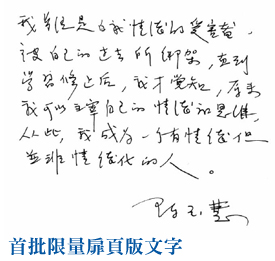 我曾經是自我情緒的受害者，
被自己的過去所綁架，直到
學習修之后，我才覺知，原來
我可以主宰自己的情緒和思維，
从此，我成为一个有情緒但
並非情緒化的人。
陳玉慧
首批限量扉頁版文字